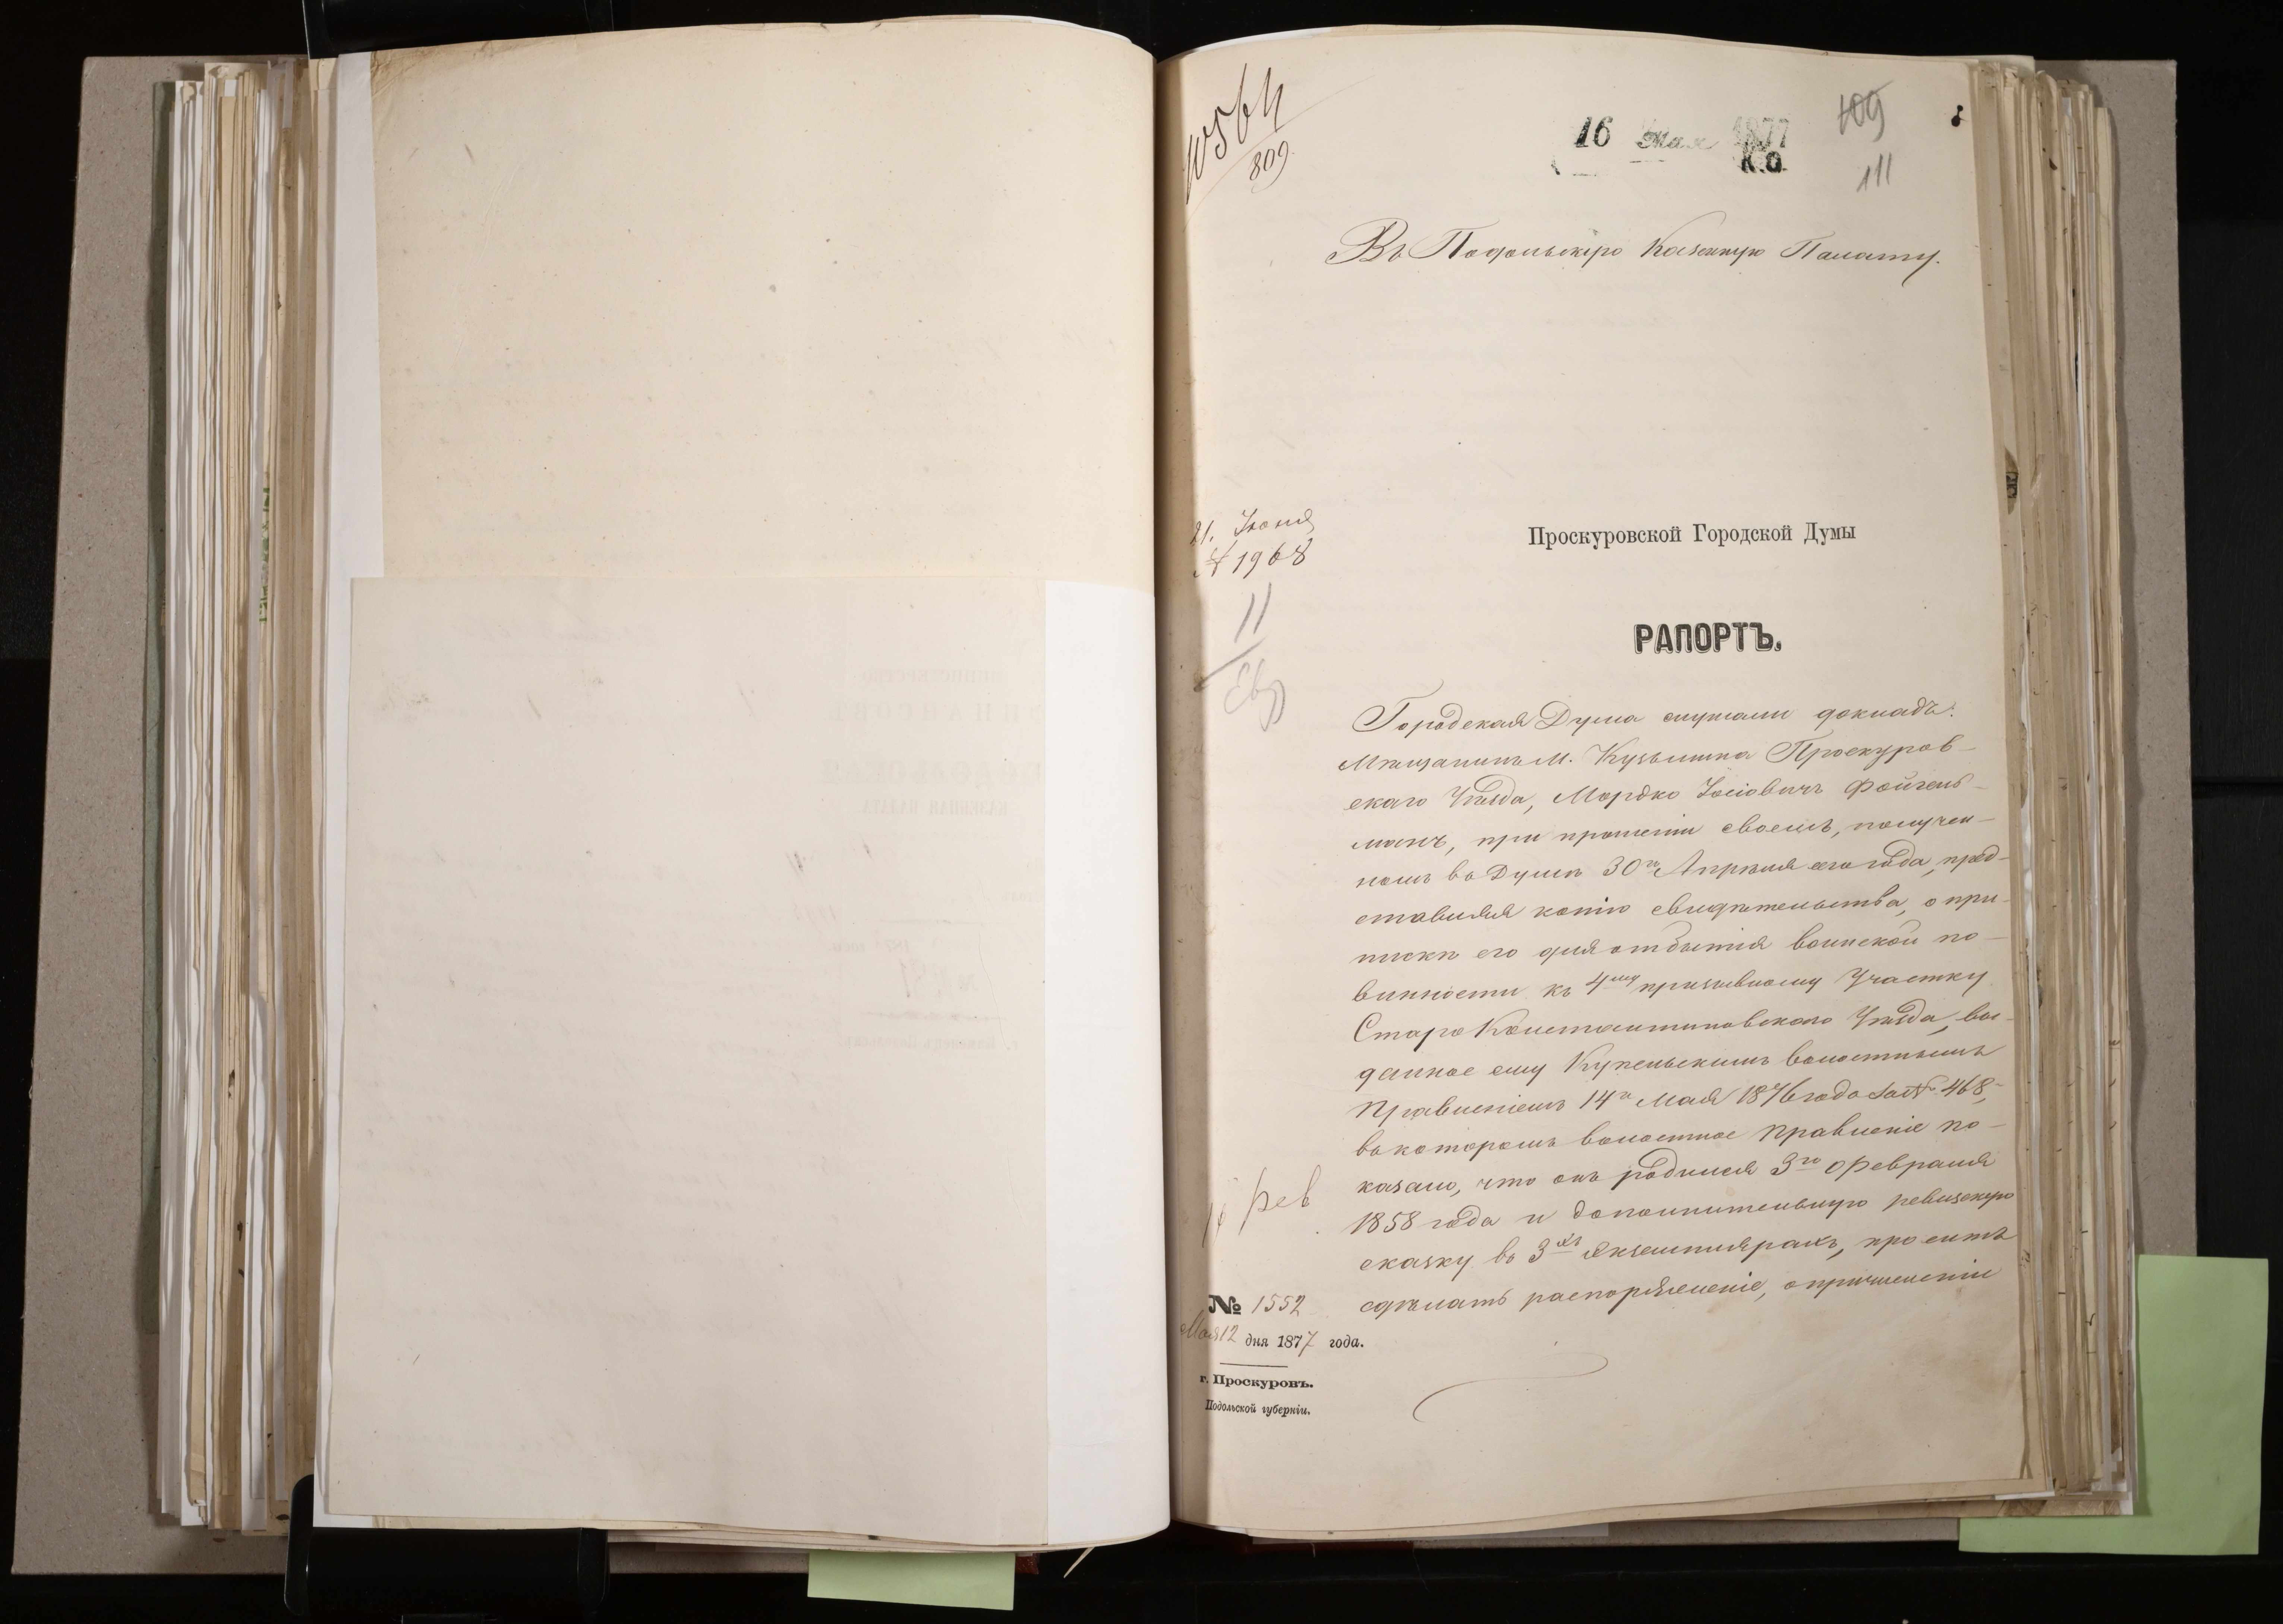 16 Мая 1877
К.О.
109
111
10564
809
Въ Подольскую Казенную Палату.
21. Іюня
№ 1968
11
Евр
Проскуровской Городской Думы
РАПОРТЪ.
Городская Дума слушали докладъ:
Мѣщанинъ М. Кузьмина Проскуров-
скаго Уѣзда, Мордко Іосіовичъ Фойгель-
манъ, при прошеніи своемъ, получен-
номъ въ Думѣ 30го Апрѣля сего года, пред-
ставляя копію свидѣтельства, о при-
пискѣ его для отбытія воинской по-
винности къ 4му призывному Участку
Старо Константиновскаго Уѣзда, вы-
данное ему Купельскимъ волостнымъ
Правленіемъ 14го Мая 1876 года за № 468,
въ которомъ волостное Правленіе по-
казало, что онъ родился 3го Февраля
1858 года и дополнительную ревизскую
сказку въ 3хъ экземплярахъ, проситъ
сдѣлать распоряженіе, о причисленіи
рев
№ 1552
Мая 12 дня 1877 года.
г. Проскуровъ.
Подольской губерніи.